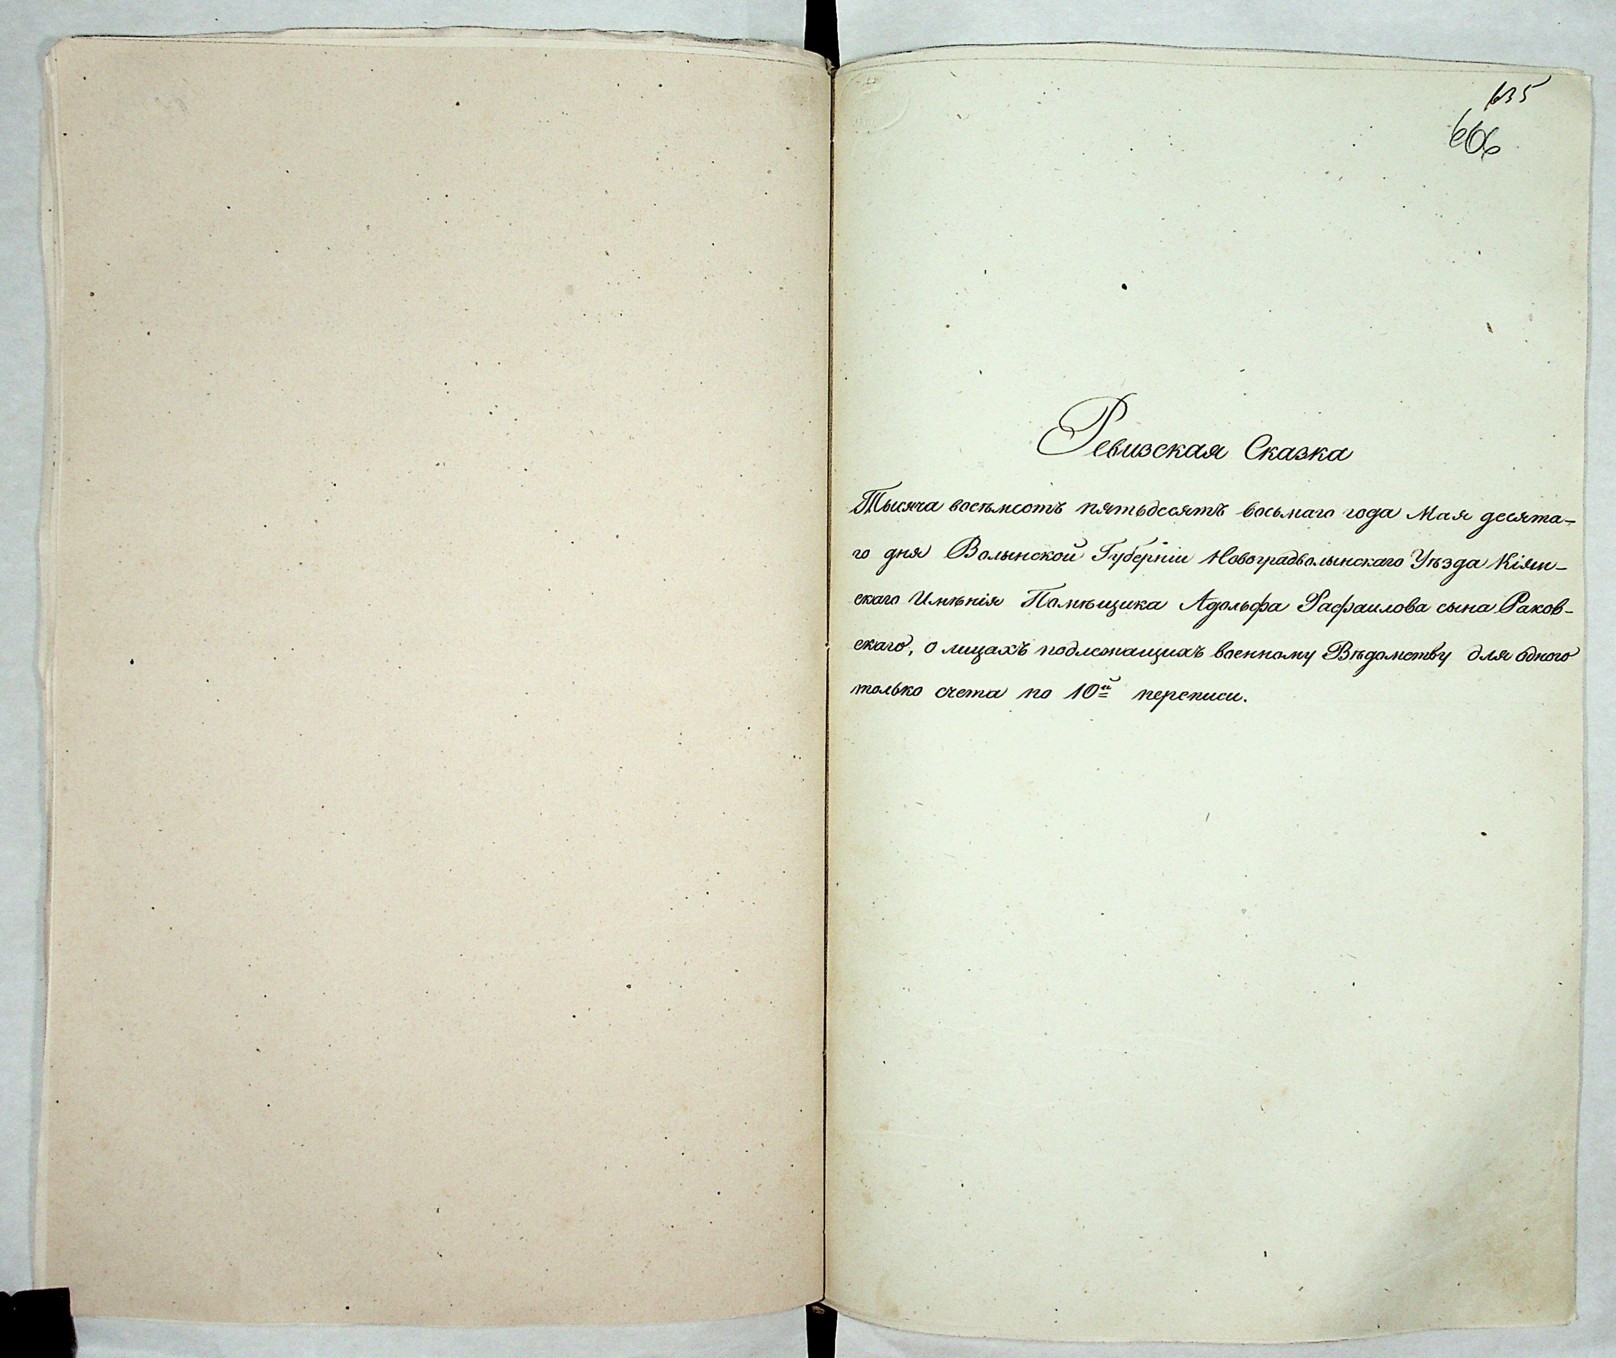 635
606
Ревизская Сказка
Тысяча восемьсотъ пятьдесятъ восьмаго года Мая десята-
го дня Волынской Губерніи Новоградволынскаго Уѣзда Кіян-
скаго Имѣнія Помѣщика Адольфа Рафаилова сына Раков-
скаго, о лицахъ подлежащихъ военному Вѣдомству для одного
только счета по 10й переписи.